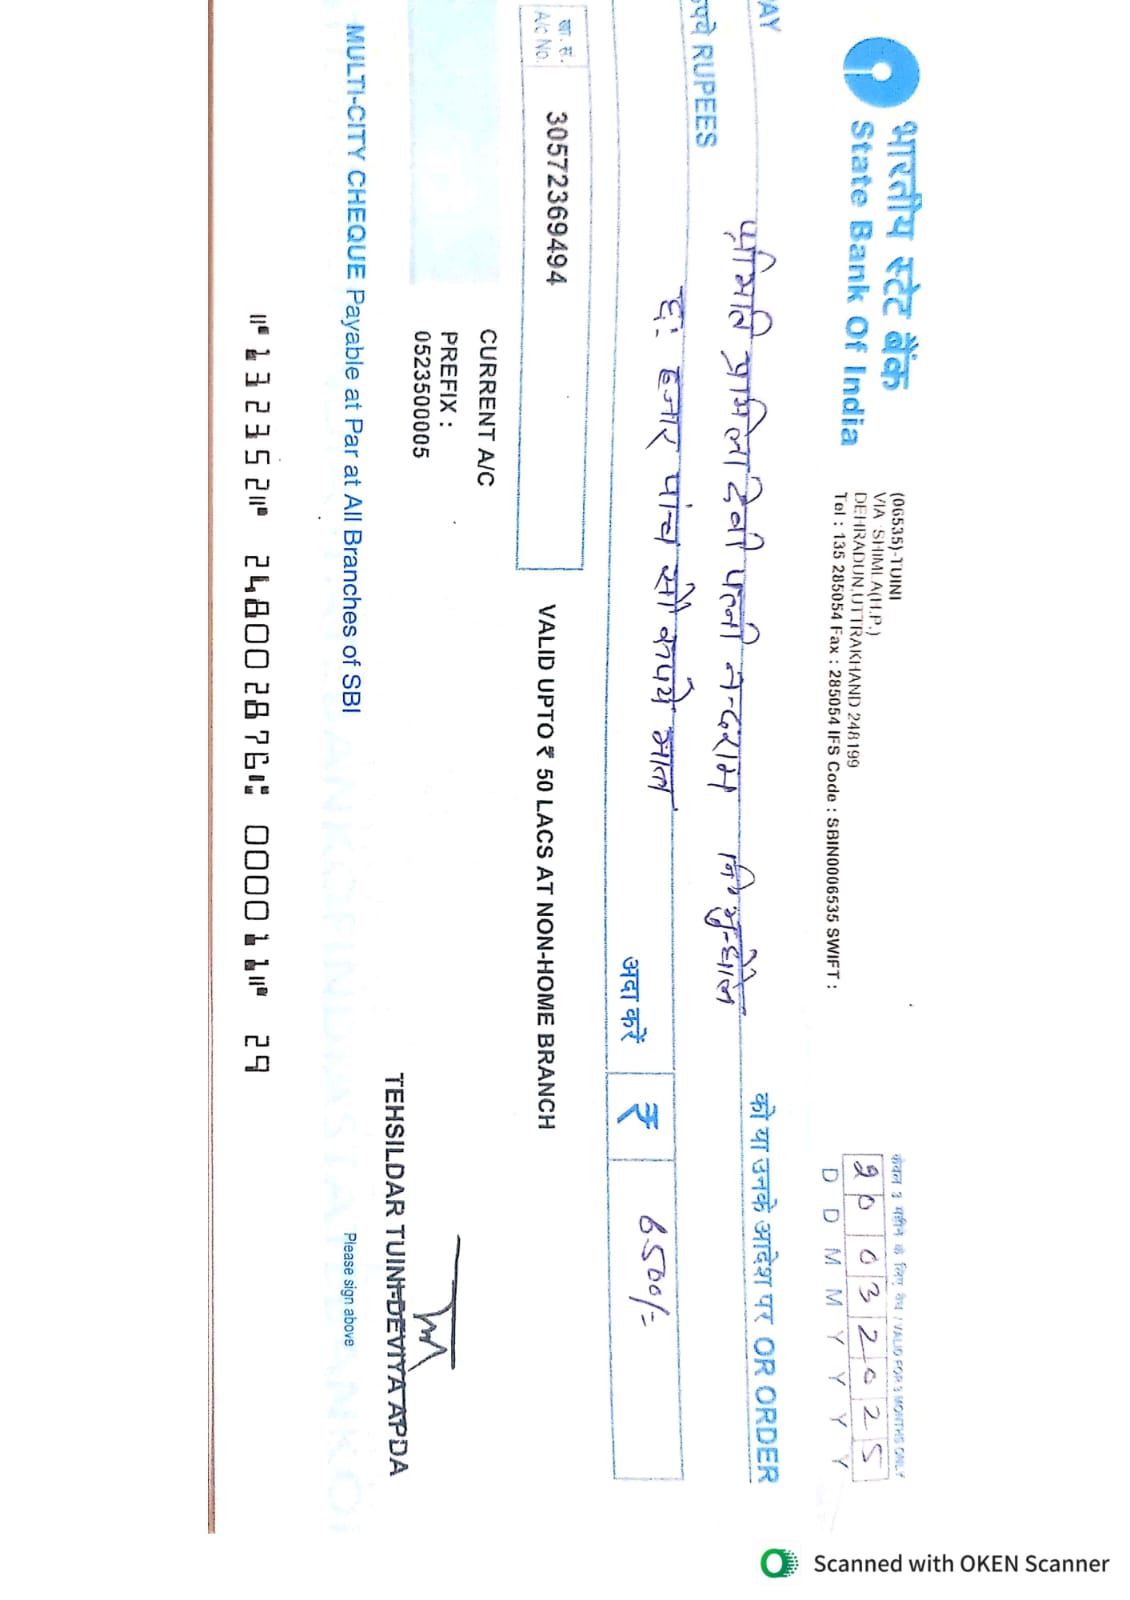 भारतीय स्टेट बैंक
State Bank Of India
(06535)-TUINI
VIA SHIMLA(H.P.)
DEHRADUN,UTTRAKHAND 248199
Tel : 135 285054 Fax : 285054 IFS Code : SBIN0006535 SWIFT :
केवल 3 महीने के लिए वैध / VALID FOR 3 MONTHS ONLY
20032025
D D M M Y Y Y Y
AY श्रीमति प्रमिला देवी पत्नी नन्दराम नि० को या उनके आदेश पर OR ORDER
पये RUPEES छः हजार पांच सौ रूपये मात्र
अदा करें ₹ 6500/=
खा. सं.
A/c No. 30572369494
VALID UPTO ₹ 50 LACS AT NON-HOME BRANCH
CURRENT A/C
PREFIX :
0523500005
TEHSILDAR TUINI-DEVIYA APDA
MULTI-CITY CHEQUE Payable at Par at All Branches of SBI
Please sign above
⑈112352⑈ 248002876⑆ 000011⑈ 29
Scanned with OKEN Scanner